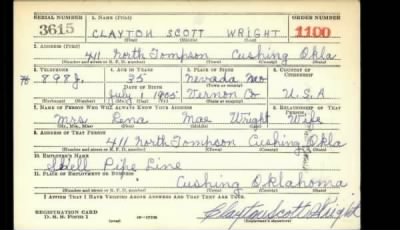 SERIAL NUMBER 1. NAME (Print) ORDER NUMBER
3615 CLAYTON SCOTT WRIGHT 1100
(First) (Middle) (Last)
2. ADDRESS (Print)
411 North Tompson Cushing Okla
3. TELEPHONE 4. AGE IN YEARS 5. PLACE OF BIRTH 6. COUNTRY OF CITIZENSHIP
898J. 35 Nevada Mo
DATE OF BIRTH (Town or county)
July 1 1905 Vernon Co U.S.A
(Exchange) (Number) (Mo.) (Day) (Yr.) (State or country)
7. NAME OF PERSON WHO WILL ALWAYS KNOW YOUR ADDRESS 8. RELATIONSHIP OF THAT PERSON
Mrs Lena Mae Wright Wife
(Mr., Mrs., Miss) (First) (Middle) (Last)
9. ADDRESS OF THAT PERSON
411 North Tompson Cushing Okla
10. EMPLOYER'S NAME
Shell Pipe Line
11. PLACE OF EMPLOYMENT OR BUSINESS
Cushing Oklahoma
I AFFIRM THAT I HAVE VERIFIED ABOVE ANSWERS AND THAT THEY ARE TRUE.
REGISTRATION CARD
D. S. S. FORM 1 Clayton Scott Wright